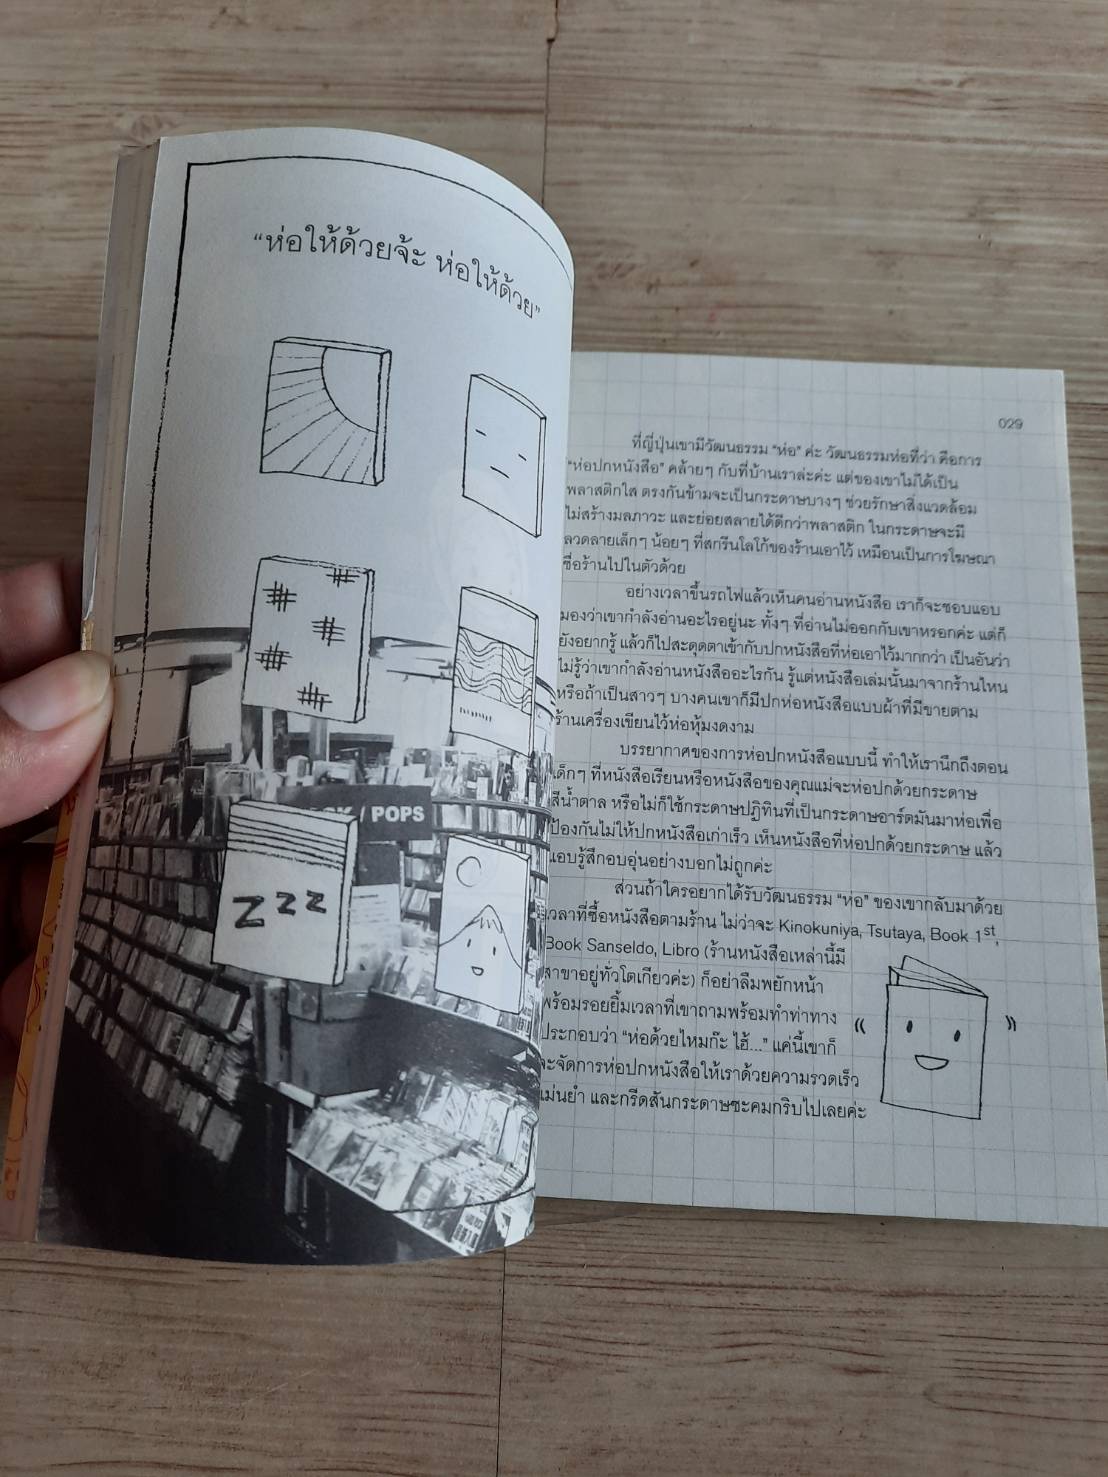 “ห่อให้ด้วยจ้ะ ห่อให้ด้วย”
/ POPS
zzz
029
ที่ญี่ปุ่นเขามีวัฒนธรรม “ห่อ” ค่ะ วัฒนธรรมห่อที่ว่า คือการ
“ห่อปกหนังสือ” คล้ายๆ กับที่บ้านเราล่ะค่ะ แต่ของเขาไม่ได้เป็น
พลาสติกใส ตรงกันข้ามจะเป็นกระดาษบางๆ ช่วยรักษาสิ่งแวดล้อม
ไม่สร้างมลภาวะ และย่อยสลายได้ดีกว่าพลาสติก ในกระดาษจะมี
ลวดลายเล็กๆ น้อยๆ ที่สกรีนโลโก้ของร้านเอาไว้ เหมือนเป็นการโฆษณา
ชื่อร้านไปในตัวด้วย
อย่างเวลาขึ้นรถไฟแล้วเห็นคนอ่านหนังสือ เราก็จะชอบแอบ
มองว่าเขากำลังอ่านอะไรอยู่นะ ทั้งๆ ที่อ่านไม่ออกกับเขาหรอกค่ะ แต่ก็
ยังอยากรู้ แล้วก็ไปสะดุดตาเข้ากับปกหนังสือที่ห่อเอาไว้มากกว่า เป็นอันว่า
ไม่รู้ว่าเขากำลังอ่านหนังสืออะไรกัน รู้แต่หนังสือเล่มนั้นมาจากร้านไหน
หรือถ้าเป็นสาวๆ บางคนเขาก็มีปกห่อหนังสือแบบผ้าที่มีขายตาม
ร้านเครื่องเขียนไว้ห่อหุ้มงดงาม
บรรยากาศของการห่อปกหนังสือแบบนี้ ทำให้เรานึกถึงตอน
เด็กๆ ที่หนังสือเรียนหรือหนังสือของคุณแม่จะห่อปกด้วยกระดาษ
สีน้ำตาล หรือไม่ก็ใช้กระดาษปฏิทินที่เป็นกระดาษอาร์ตมันมาห่อเพื่อ
ป้องกันไม่ให้ปกหนังสือเก่าเร็ว เห็นหนังสือที่ห่อปกด้วยกระดาษ แล้ว
แอบรู้สึกอบอุ่นอย่างบอกไม่ถูกค่ะ
ส่วนถ้าใครอยากได้รับวัฒนธรรม “ห่อ” ของเขากลับมาด้วย
เวลาที่ซื้อหนังสือตามร้าน ไม่ว่าจะ Kinokuniya, Tsutaya, Book 1st,
Book Sanseldo, Libro (ร้านหนังสือเหล่านี้มี
สาขาอยู่ทั่วโตเกียวค่ะ) ก็อย่าลืมพยักหน้า
พร้อมรอยยิ้มเวลาที่เขาถามพร้อมทำท่าทาง
ประกอบว่า “ห่อด้วยไหมก๊ะ ไฮ้...” แค่นี้เขาก็
จะจัดการห่อปกหนังสือให้เราด้วยความรวดเร็ว
แม่นยำ และกรีดสันกระดาษซะคมกริบไปเลยค่ะ